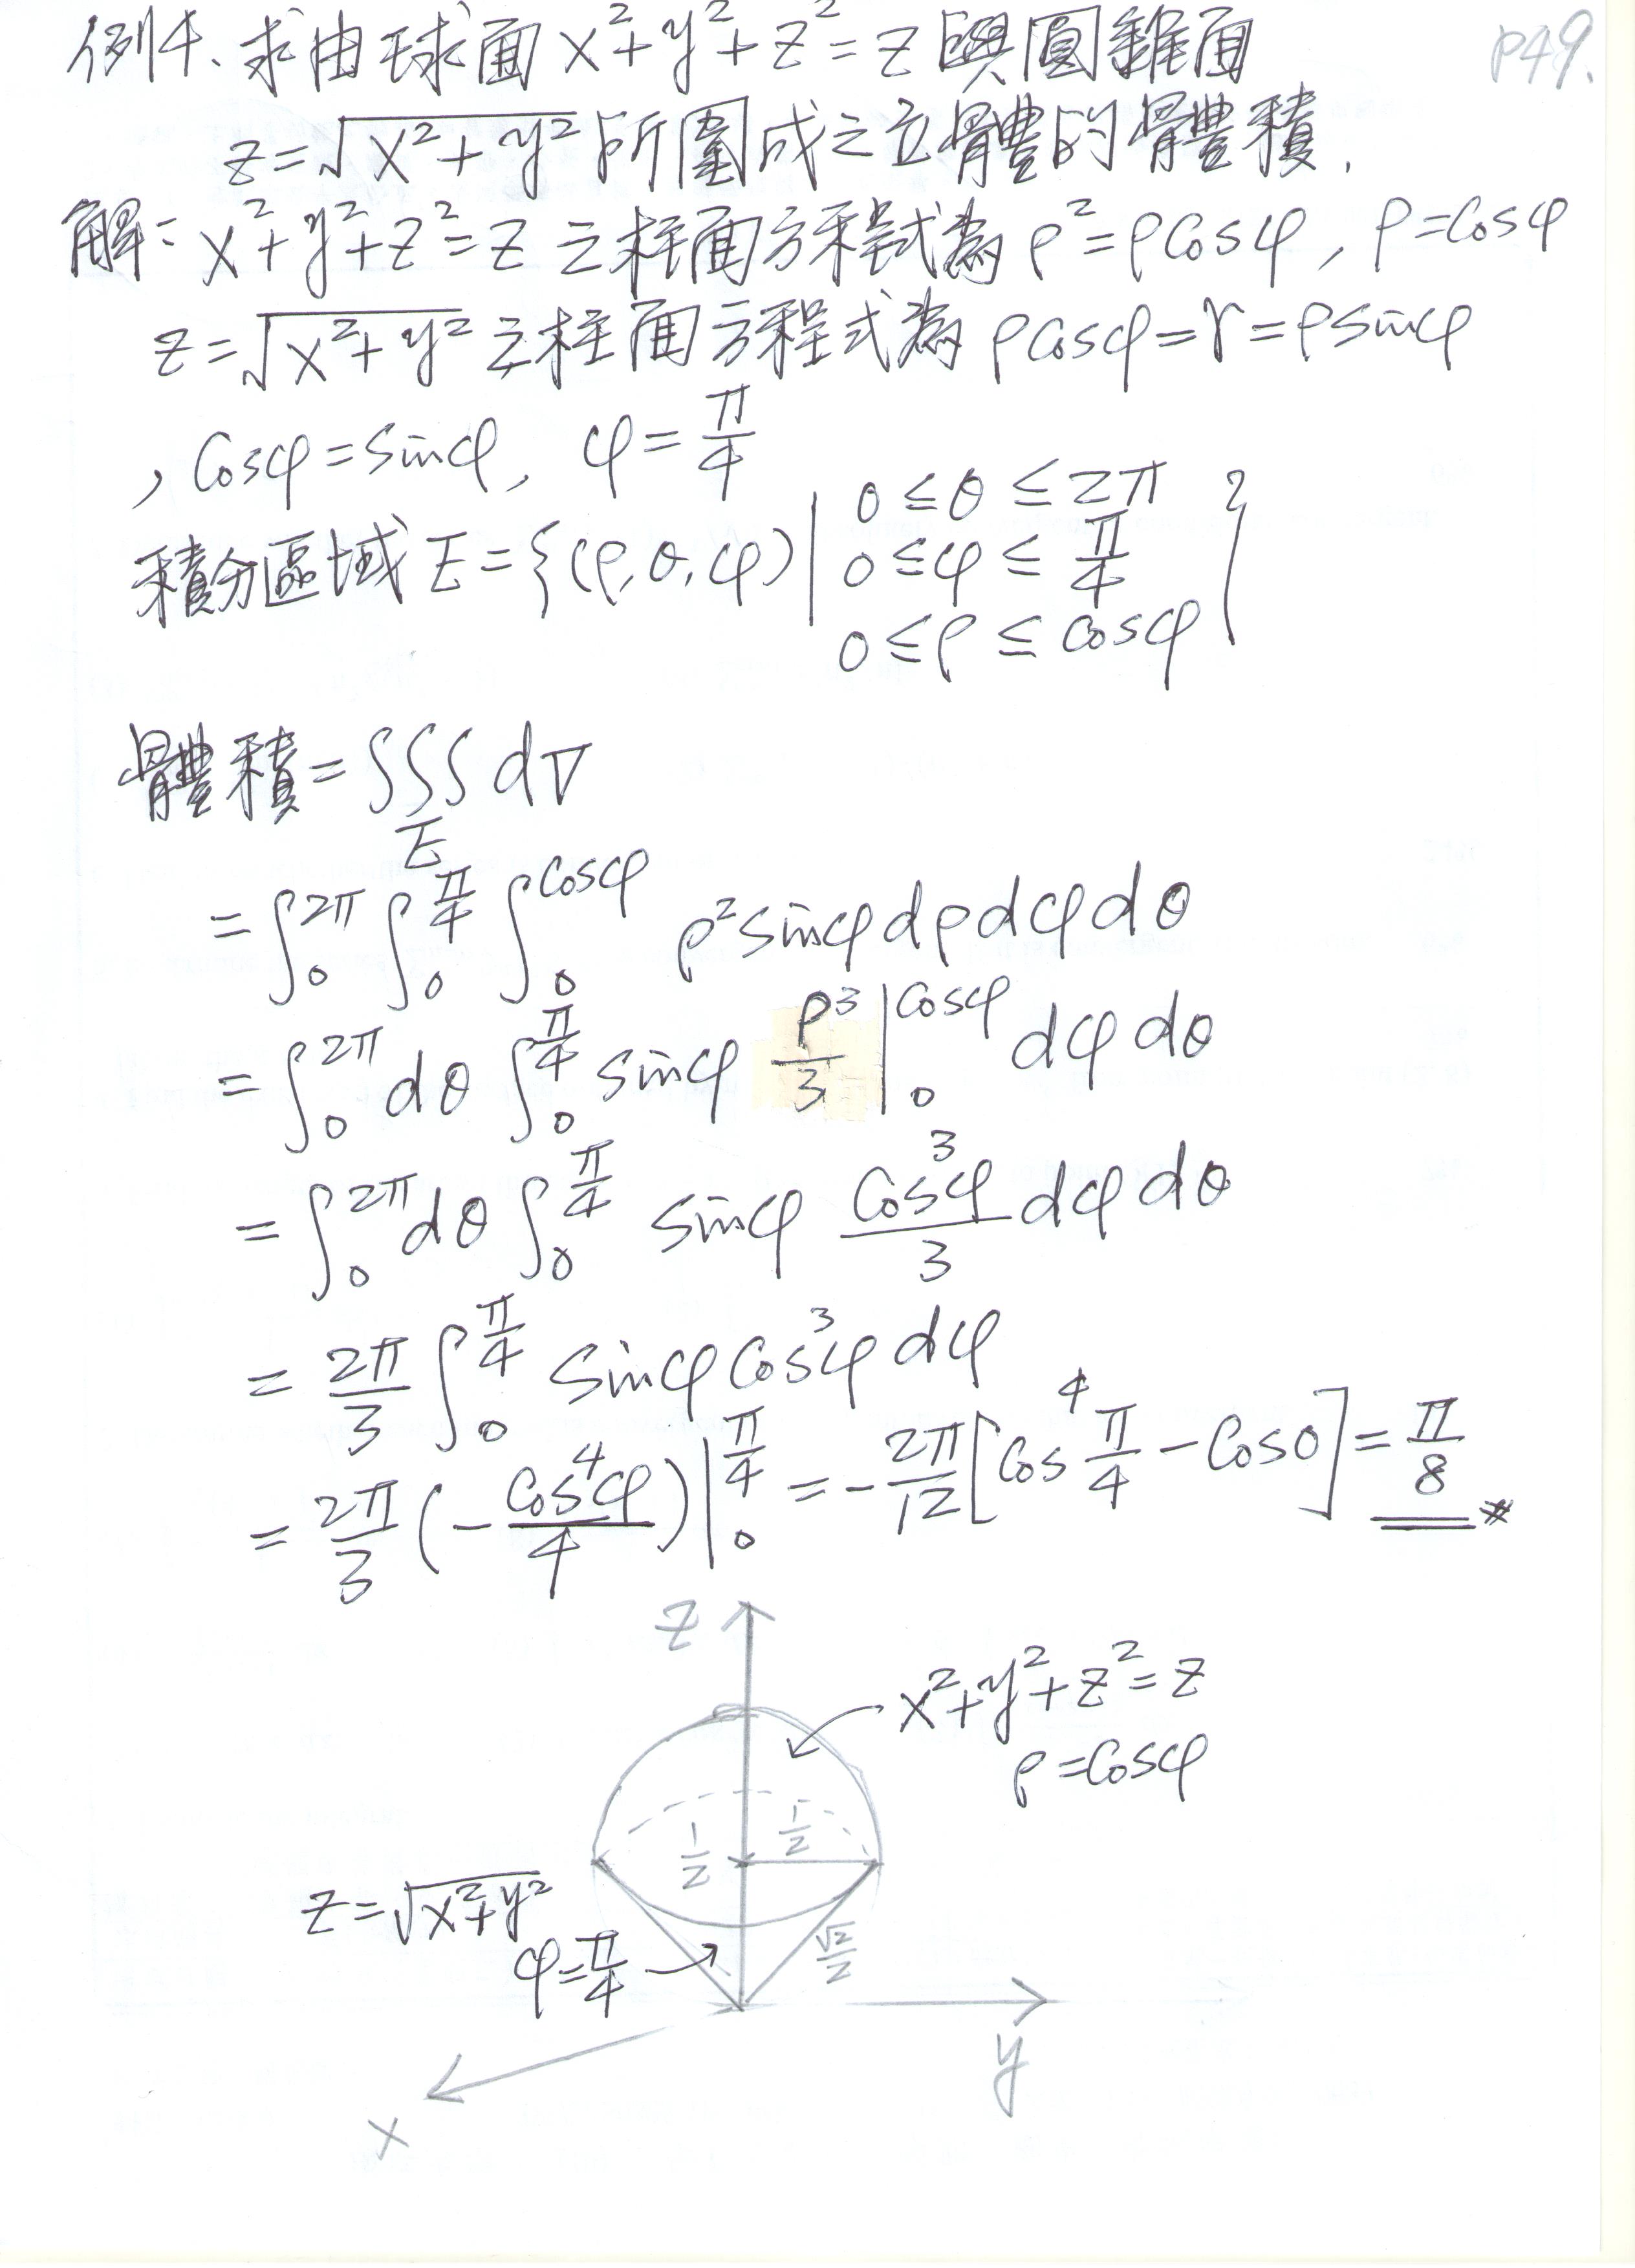 P49.
例4、求由球面 x²+y²+z²=z 與圓錐面
z=√(x²+y²) 所圍成之立體的體積.
解: x²+y²+z²=z 之柱面方程式為 ρ²=ρCosφ, ρ=Cosφ
z=√(x²+y²) 之柱面方程式為 ρCosφ=r=ρSinφ
, Cosφ=Sinφ, φ=π/4
積分區域 E={(ρ,θ,φ)| 0≤θ≤2π
0≤φ≤π/4
0≤ρ≤cosφ}
體積=∫∫∫_E dV
=∫₀^2π ∫₀^π/4 ∫₀^Cosφ ρ²Sinφ dρ dφ dθ
=∫₀^2π dθ ∫₀^π/4 Sinφ ρ³/3 |₀^Cosφ dφ dθ
=∫₀^2π dθ ∫₀^π/4 Sinφ Cos³φ/3 dφ dθ
=2π/3 ∫₀^π/4 SinφCos³φ dφ
=2π/3 (-Cos⁴φ/4)|₀^π/4 = -2π/12 [Cos⁴ π/4 - Cos0] = π/8 #
z
x²+y²+z²=z
ρ=Cosφ
1/2
1/2
z=√(x²+y²)
φ=π/4
√2/2
y
x